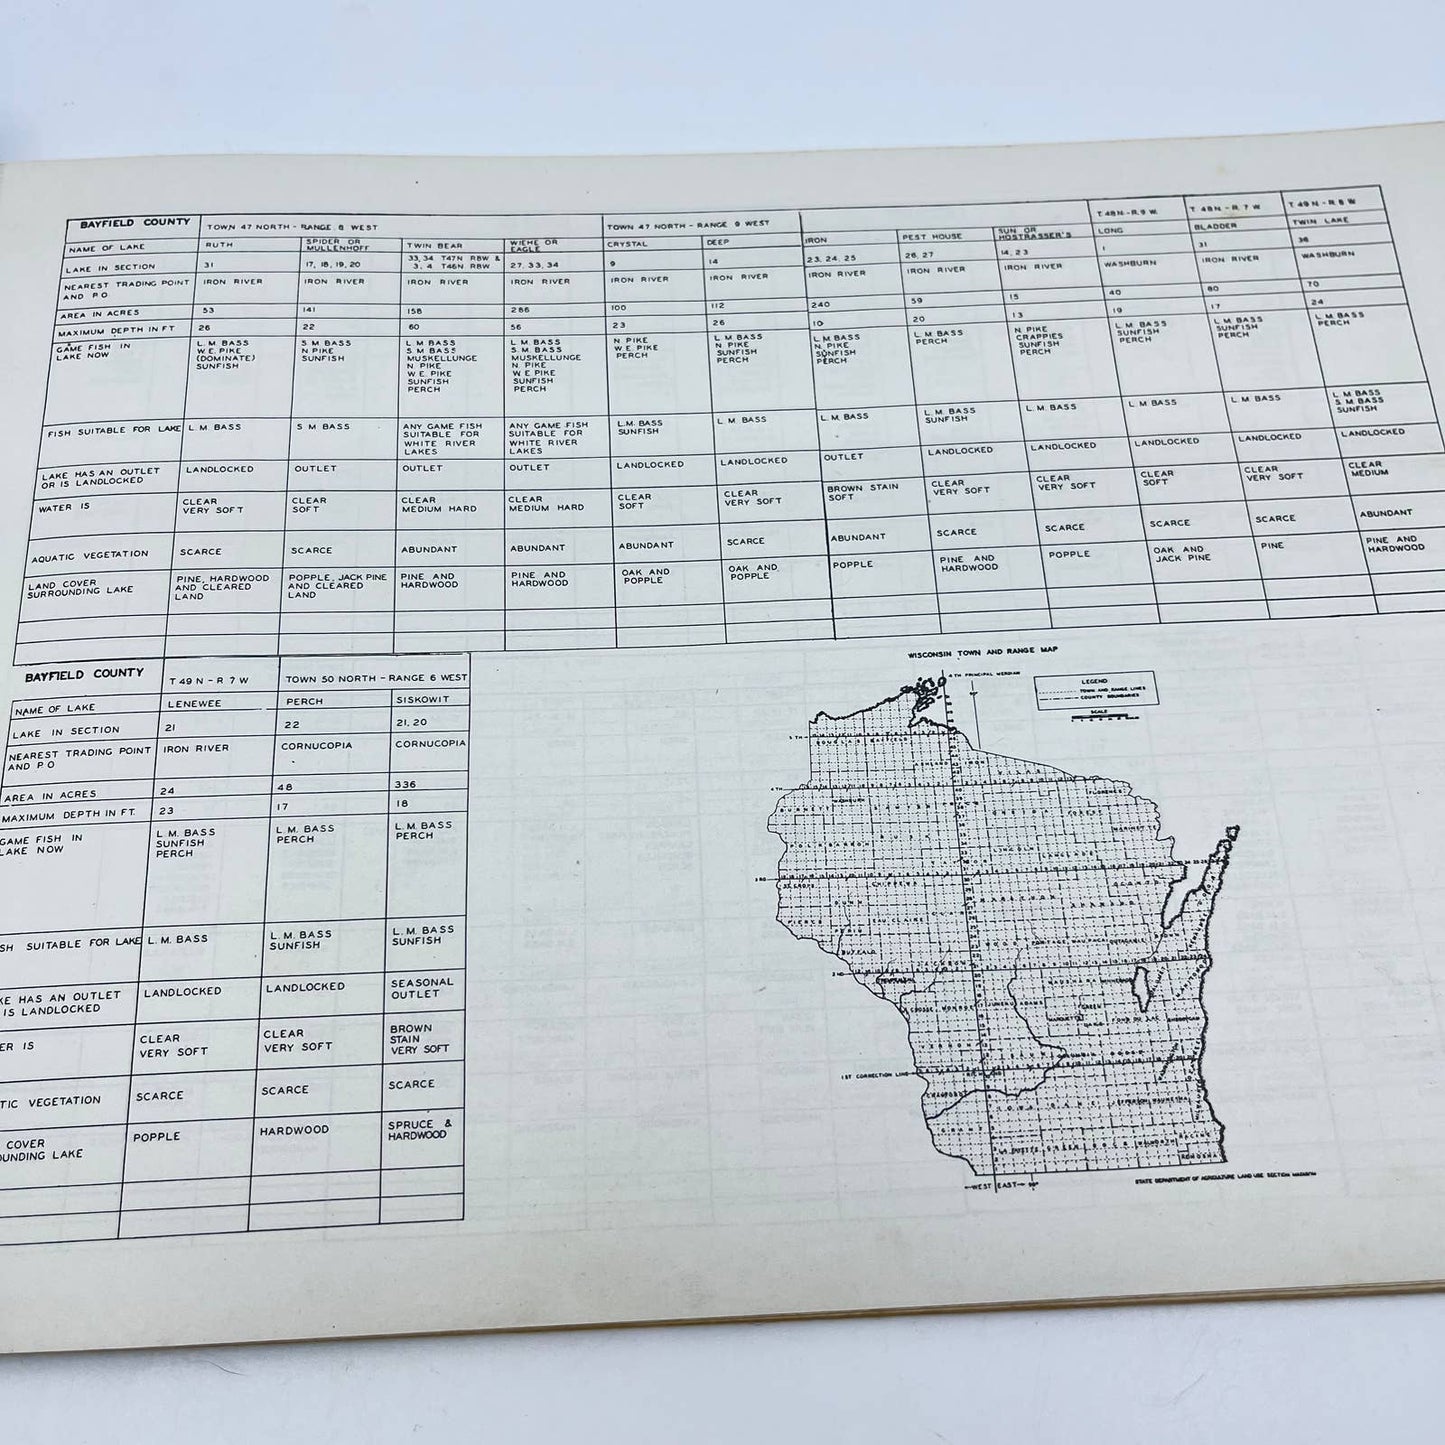 BAYFIELD COUNTY
TOWN 47 NORTH - RANGE 8 WEST
TOWN 47 NORTH - RANGE 9 WEST
T 48N - R 9 W
T 48N - R 7 W
T 49N - R 8 W
NAME OF LAKE
RUTH
SPIDER OR
MULLENHOFF
TWIN BEAR
WIEHE OR
EAGLE
CRYSTAL
DEEP
IRON
PEST HOUSE
SUN OR
HOSTRASSER'S
LONG
BLADDER
TWIN LAKE
LAKE IN SECTION
31
17, 18, 19, 20
33, 34 T47N R8W &
3, 4 T46N R8W
27, 33, 34
9
14
23, 24, 25
26, 27
14, 23
1
31
36
NEAREST TRADING POINT
AND P O
IRON RIVER
IRON RIVER
IRON RIVER
IRON RIVER
IRON RIVER
IRON RIVER
IRON RIVER
IRON RIVER
IRON RIVER
WASHBURN
IRON RIVER
WASHBURN
AREA IN ACRES
53
141
158
286
100
112
240
59
15
40
80
70
MAXIMUM DEPTH IN FT
26
22
60
56
23
26
10
20
13
19
17
24
GAME FISH IN
LAKE NOW
L. M. BASS
W. E. PIKE
(DOMINATE)
SUNFISH
S M BASS
N PIKE
SUNFISH
L M BASS
S M BASS
MUSKELLUNGE
N PIKE
W E PIKE
SUNFISH
PERCH
L M BASS
S. M BASS
MUSKELLUNGE
N. PIKE
W E PIKE
SUNFISH
PERCH
N PIKE
W E PIKE
PERCH
L M BASS
N PIKE
SUNFISH
PERCH
L M BASS
N. PIKE
SUNFISH
PERCH
L M BASS
PERCH
N PIKE
CRAPPIES
SUNFISH
PERCH
L M BASS
SUNFISH
PERCH
L M BASS
SUNFISH
PERCH
L M BASS
PERCH
FISH SUITABLE FOR LAKE
L. M. BASS
S M BASS
ANY GAME FISH
SUITABLE FOR
WHITE RIVER
LAKES
ANY GAME FISH
SUITABLE FOR
WHITE RIVER
LAKES
L.M. BASS
SUNFISH
L M BASS
L. M BASS
L. M BASS
SUNFISH
L M BASS
L M BASS
L M BASS
L. M BASS
S M BASS
SUNFISH
LAKE HAS AN OUTLET
OR IS LANDLOCKED
LANDLOCKED
OUTLET
OUTLET
OUTLET
LANDLOCKED
LANDLOCKED
OUTLET
LANDLOCKED
LANDLOCKED
LANDLOCKED
LANDLOCKED
LANDLOCKED
WATER IS
CLEAR
VERY SOFT
CLEAR
SOFT
CLEAR
MEDIUM HARD
CLEAR
MEDIUM HARD
CLEAR
SOFT
CLEAR
VERY SOFT
BROWN STAIN
SOFT
CLEAR
VERY SOFT
CLEAR
VERY SOFT
CLEAR
SOFT
CLEAR
VERY SOFT
CLEAR
MEDIUM
AQUATIC VEGETATION
SCARCE
SCARCE
ABUNDANT
ABUNDANT
ABUNDANT
SCARCE
ABUNDANT
SCARCE
SCARCE
SCARCE
SCARCE
ABUNDANT
LAND COVER
SURROUNDING LAKE
PINE, HARDWOOD
AND CLEARED
LAND
POPPLE, JACK PINE
AND CLEARED
LAND
PINE AND
HARDWOOD
PINE AND
HARDWOOD
OAK AND
POPPLE
OAK AND
POPPLE
POPPLE
PINE AND
HARDWOOD
POPPLE
OAK AND
JACK PINE
PINE
PINE AND
HARDWOOD
BAYFIELD COUNTY
T 49 N - R 7 W
TOWN 50 NORTH - RANGE 6 WEST
NAME OF LAKE
LENEWEE
PERCH
SISKOWIT
LAKE IN SECTION
21
22
21, 20
NEAREST TRADING POINT
AND P O
IRON RIVER
CORNUCOPIA
CORNUCOPIA
AREA IN ACRES
24
48
336
MAXIMUM DEPTH IN FT.
23
17
18
GAME FISH IN
LAKE NOW
L. M. BASS
SUNFISH
PERCH
L. M. BASS
PERCH
L. M. BASS
PERCH
SH SUITABLE FOR LAKE
L. M. BASS
L. M. BASS
SUNFISH
L. M. BASS
SUNFISH
KE HAS AN OUTLET
IS LANDLOCKED
LANDLOCKED
LANDLOCKED
SEASONAL
OUTLET
ER IS
CLEAR
VERY SOFT
CLEAR
VERY SOFT
BROWN
STAIN
VERY SOFT
TIC VEGETATION
SCARCE
SCARCE
SCARCE
COVER
OUNDING LAKE
POPPLE
HARDWOOD
SPRUCE &
HARDWOOD
WISCONSIN TOWN AND RANGE MAP
4 TH PRINCIPAL MERIDIAN
LEGEND
TOWN AND RANGE LINES
COUNTY BOUNDARIES
SCALE
1 ST CORRECTION LINE
WEST EAST
STATE DEPARTMENT OF AGRICULTURE LAND USE SECTION MADISON